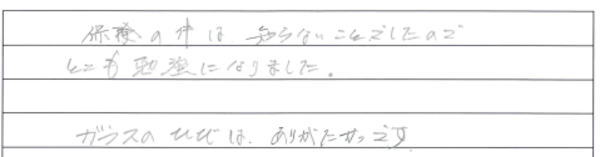 保険の件は、知らないことでしたので
とても勉強になりました。
ガラスのひびは、ありがたかったです